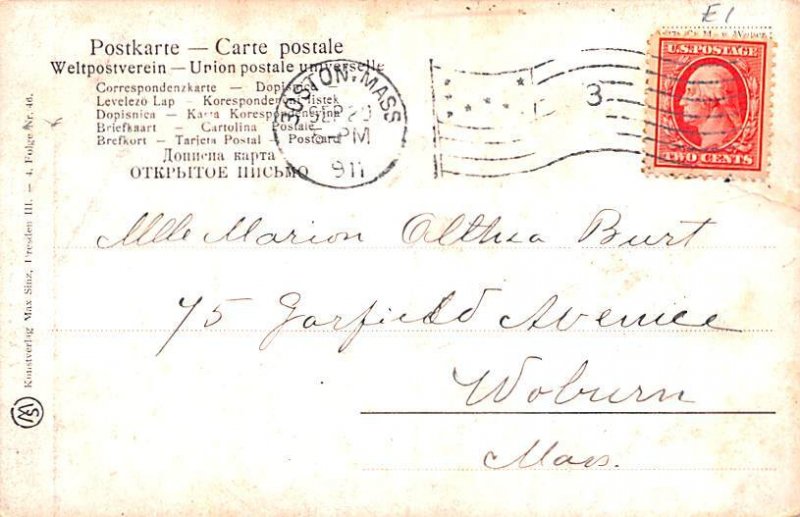 E1
Postkarte — Carte postale
Weltpostverein — Union postale universelle
Correspondenzkarte - Dopisnice -
Levelező Lap - Korespondenční lístek
Dopisnica - Karta Korespondencyjna
Briefkaart - Cartolina Postale
Brefkort - Tarjeta Postal - Postcard
Дописна карта
ОТКРЫТОЕ ПИСЬМО
BOSTON, MASS
SEP 20
PM
1911
3
U.S. POSTAGE
TWO CENTS
Mlle Marion Althea Burt
75 Garfield Avenue
Woburn
Mass.
Kunstverlag Max Sinz, Dresden III. — 4. Folge Nr. 46.